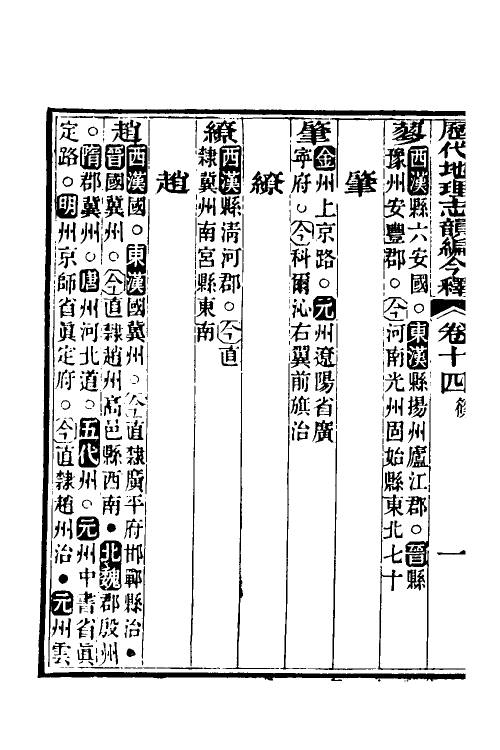 歷代地理志韻編今釋 卷十四 篠 一
蓼西漢縣六安國○東漢縣揚州廬江郡○晉縣
豫州安豐郡○今河南光州固始縣東北七十
肇
肇金州上京路○元州遼陽省廣
寧府○今科爾沁右翼前旗治
繚
繚西漢縣清河郡○今直
隸冀州南宮縣東南
趙
趙西漢國○東漢國冀州○今直隸廣平府邯鄲縣治●
晉國冀州○今直隸趙州高邑縣西南●北魏郡殷州
○隋郡冀州○唐州河北道○五代州○元州中書省眞
定路○明州京師省眞定府○今直隸趙州治●元州雲